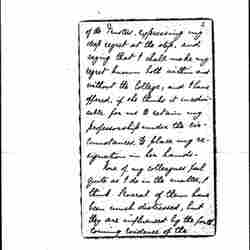 2
of the Trustees, expressing my
deep regret at the step, and
saying that I shall make my
regret known both within and
without the College, and I have
offered, if she thinks it inadvis-
able for me to retain my
professorship under the cir-
cumstances to place my re-
signation in her hands.
Some of my colleagues feel
quite as I do in the matter, I
think. Several of them have
been much distressed, but
they are influenced by the forth
coming evidence of the